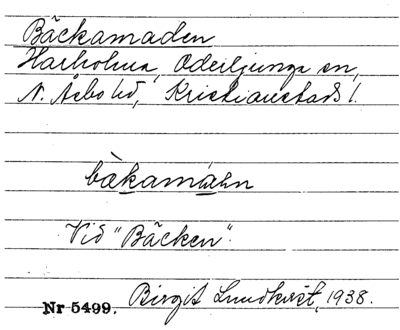 Bäckamaden
Harholma, Oderljunga sn,
N. Åsbo hd, Kristianstads l.
bèkamáan
Vid "Bäcken".
Nr 5499. Birgit Lundkvist, 1938.